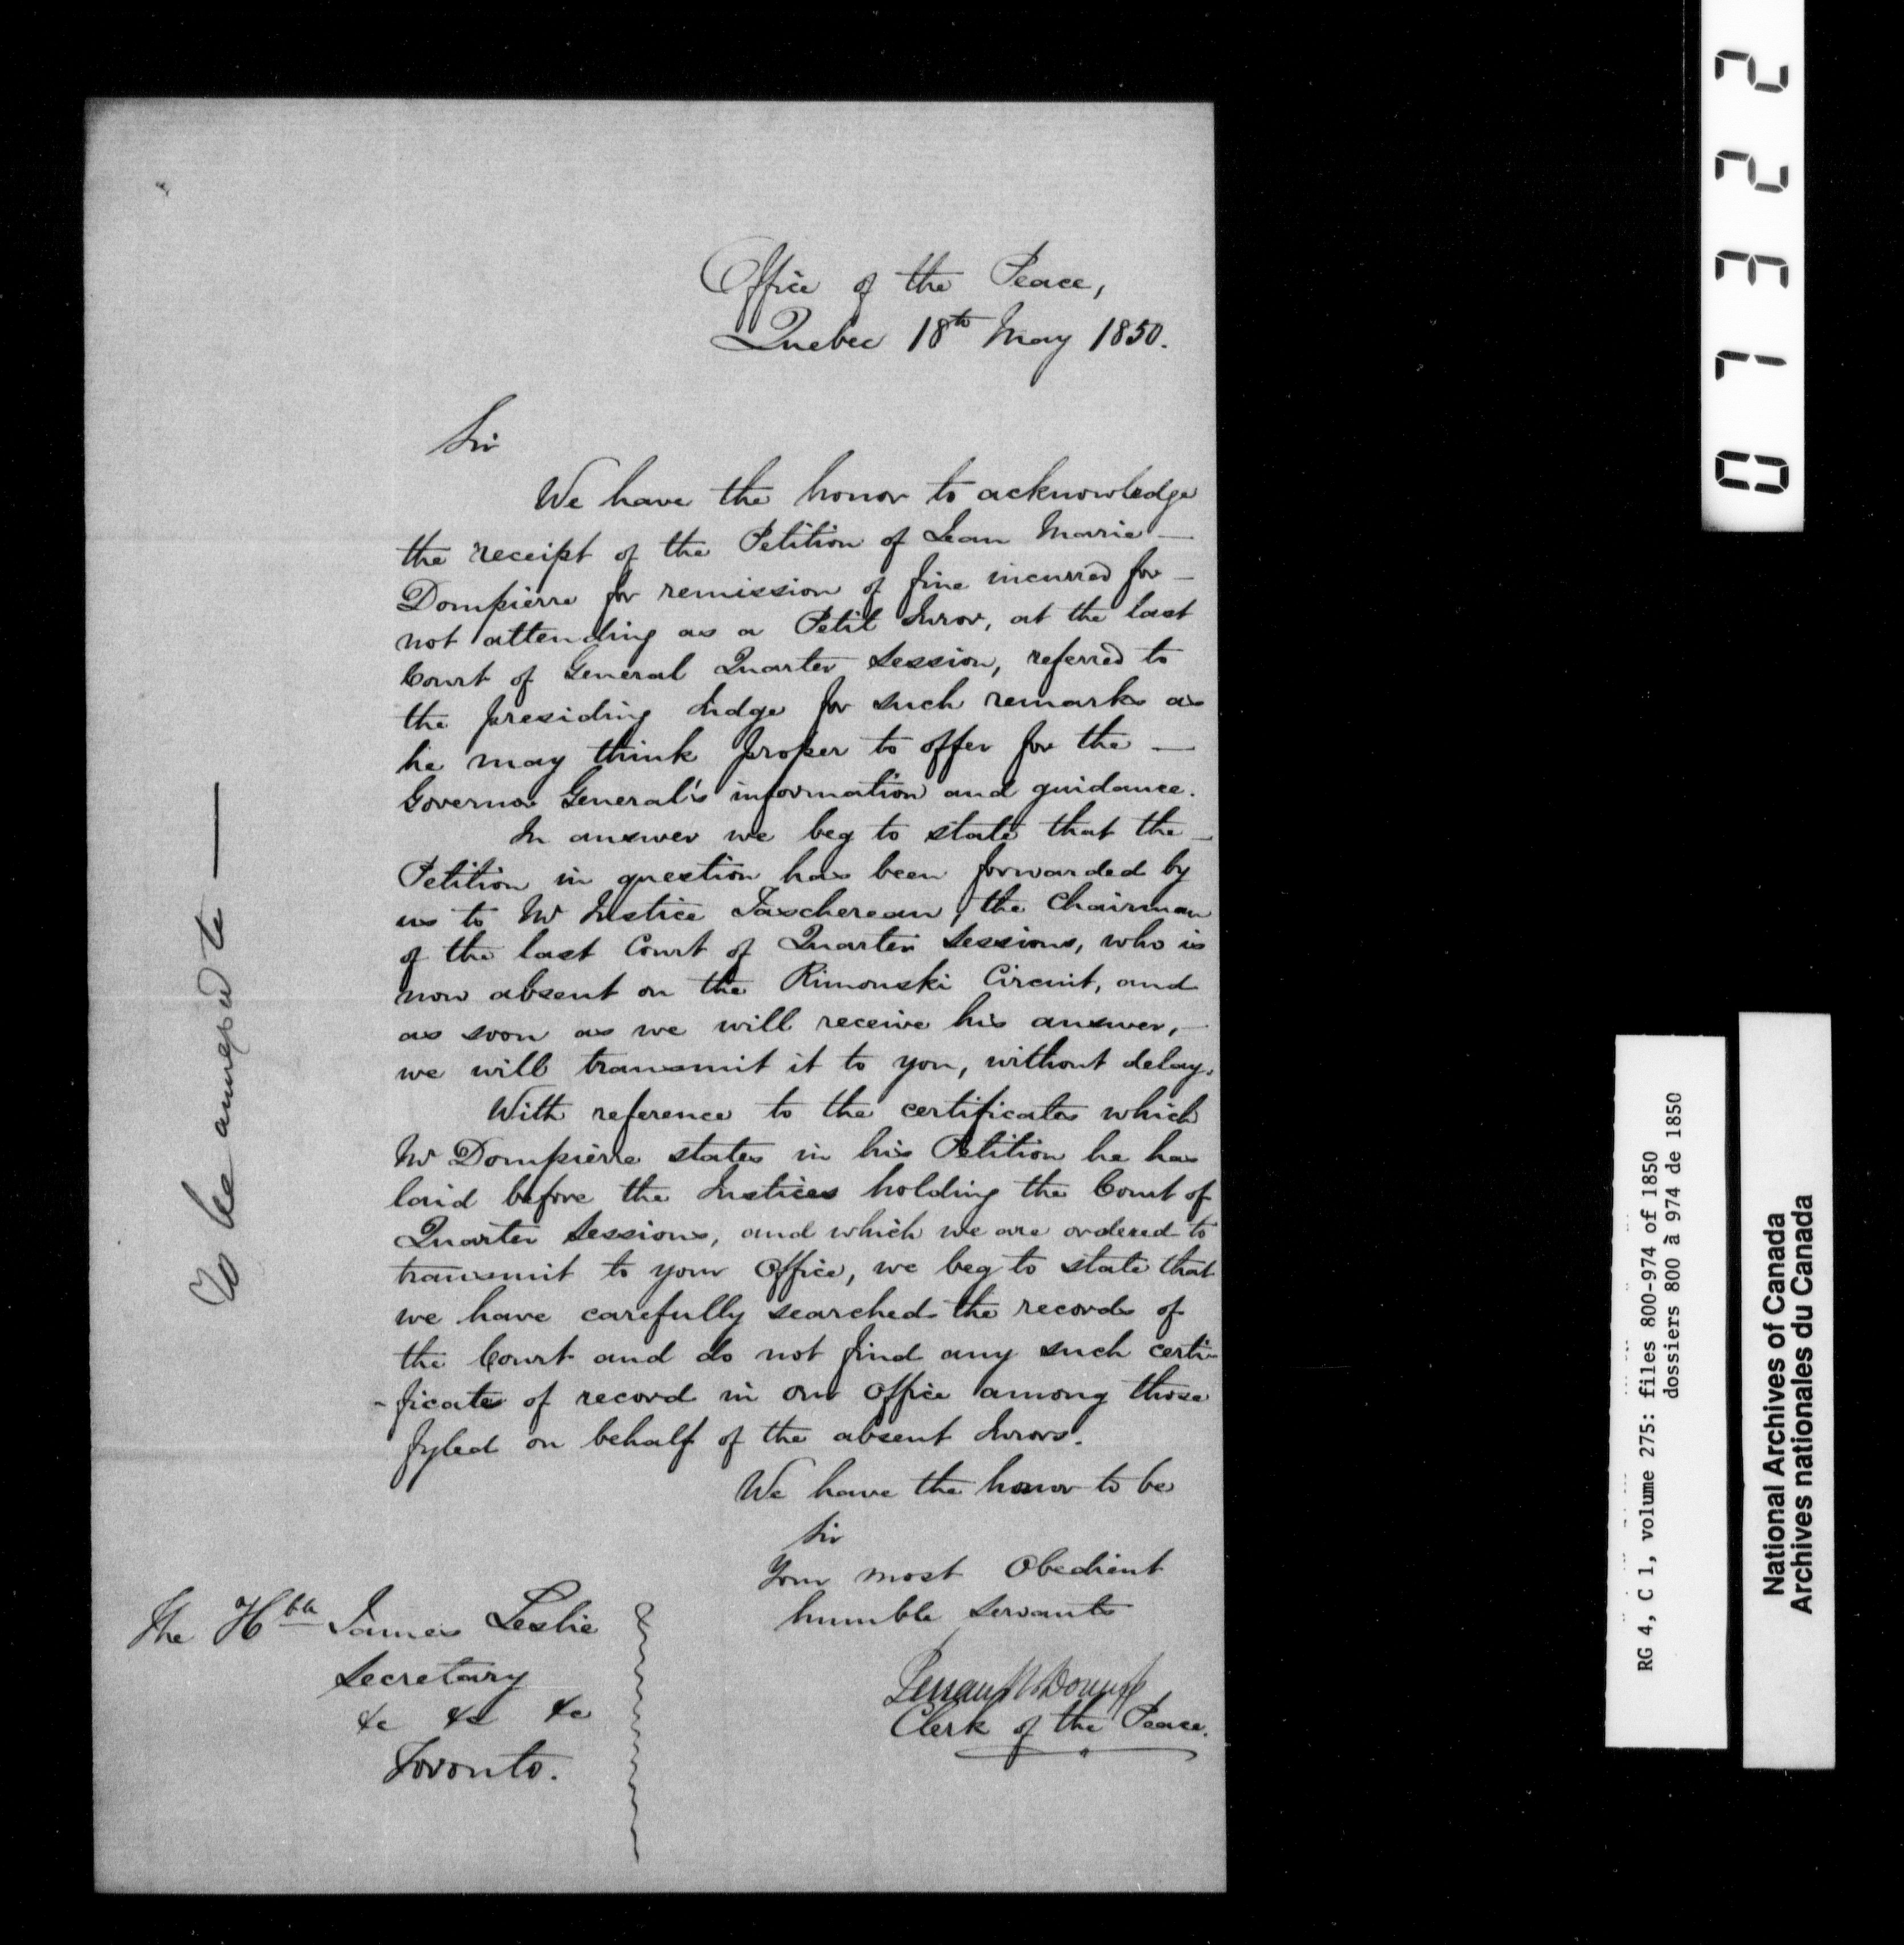 Office of the Peace,
Quebec 18th May 1850.
Sir
We have the honor to acknowledge
the receipt of the Petition of Jean Marie —
Dompierre for remission of fine incurred for —
not attending as a Petit Juror, at the last
Court of General Quarter Session, referred to
the presiding Judge for such remarks as
he may think proper to offer for the —
Governor General's information and guidance.
In answer we beg to state that the —
Petition in question has been forwarded by
us to Mr Justice Taschereau, the Chairman
of the last Court of Quarter Sessions, who is
now absent on the Rimouski Circuit, and
as soon as we will receive his answer, —
we will transmit it to you, without delay.
With reference to the certificates which
Mr Dompierre states in his Petition he has
laid before the Justices holding the Court of
Quarter Sessions, and which we are ordered to
transmit to your Office, we beg to state that
we have carefully searched the records of
the Court and do not find any such certi-
-ficates of record in our Office among those
fyled on behalf of the absent Jurors.
We have the honor to be
Sir
Your most Obedient
humble Servants
Clerk of the Peace.
The Hble James Leslie
Secretary
&c &c &c
Toronto.
To be annexed to —
07322
RG 4, C 1, volume 275: files 800-974 of 1850
dossiers 800 à 974 de 1850
National Archives of Canada
Archives nationales du Canada